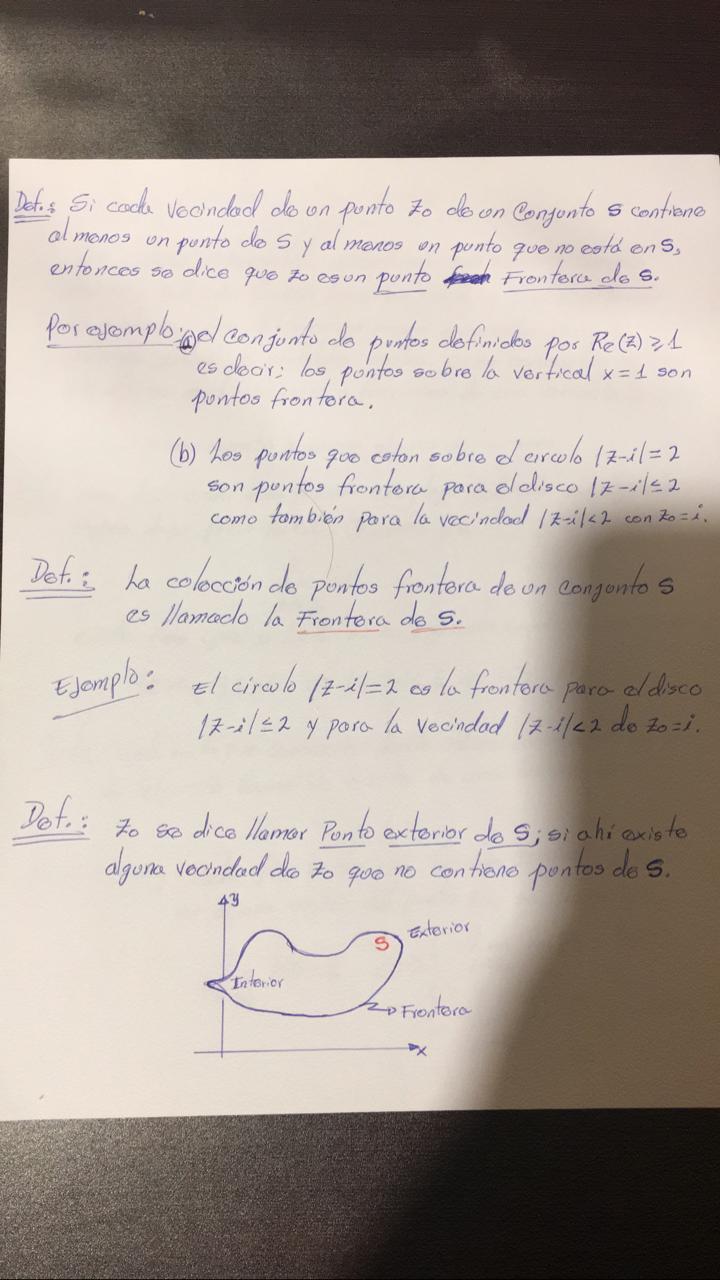 Def.: Si cada vecindad de un punto z₀ de un conjunto S contiene
al menos un punto de S y al menos un punto que no está en S,
entonces se dice que z₀ es un punto Frontera de S.
Por ejemplo: (a) el conjunto de puntos definidos por Re(z) ≥ 1
es decir; los puntos sobre la vertical x = 1 son
puntos frontera.
(b) Los puntos que estan sobre el circulo |z-i| = 2
son puntos frontera para el disco |z-i| ≤ 2
como también para la vecindad |z-i| < 2 con z₀ = i.
Def.: La colección de puntos frontera de un conjunto S
es llamado la Frontera de S.
Ejemplo: El circulo |z-i| = 2 es la frontera para el disco
|z-i| ≤ 2 y para la vecindad |z-i| < 2 de z₀ = i.
Def.: z₀ se dice llamar Punto exterior de S; si ahí existe
alguna vecindad de z₀ que no contiene puntos de S.
y
S Exterior
Interior
Frontera
x